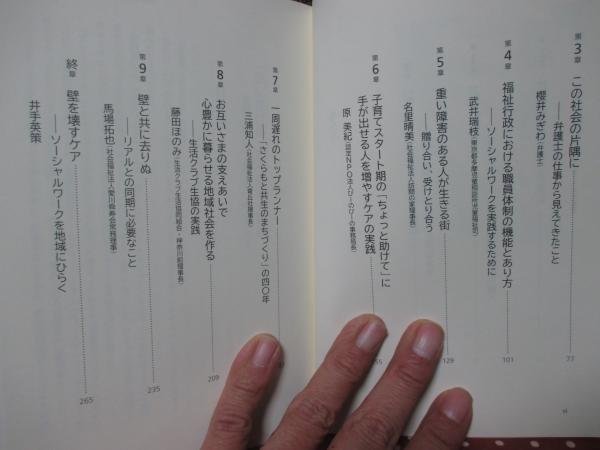 第3章 この社会の片隅に
――弁護士の仕事から見えてきたこと
櫻井みぎわ（弁護士）
77
第4章 福祉行政における職員体制の機能とあり方
――ソーシャルワークを実践するために
武井瑞枝（東京都多摩児童相談所児童福祉司）
101
第5章 重い障害のある人が生きる街
――贈り合い、受けとり合う
名里晴美（社会福祉法人訪問の家理事長）
129
第6章 子育てスタート期の「ちょっと助けて」に
手が出せる人を増やすケアの実践
原 美紀（認定NPO法人びーのびーの事務局長）
55
vi
第7章 一周遅れのトップランナー
――「さくらもと共生のまちづくり」の四〇年
三浦知人（社会福祉法人青丘社理事長）
第8章 お互いさまの支えあいで
心豊かに暮らせる地域社会を作る
――生活クラブ生協の実践
藤田ほのみ（生活クラブ生活協同組合・神奈川前理事長）
209
第9章 壁と共に去りぬ
――リアルとの同期に必要なこと
馬場拓也（社会福祉法人愛川舜寿会常務理事）
235
終章 壁を壊すケア
――ソーシャルワークを地域にひらく
井手英策
265